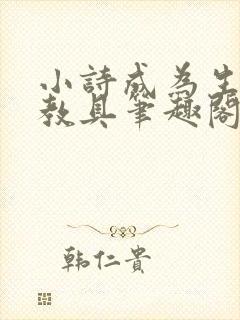 小詩成為生
教具筆趣閣
韩仁貴